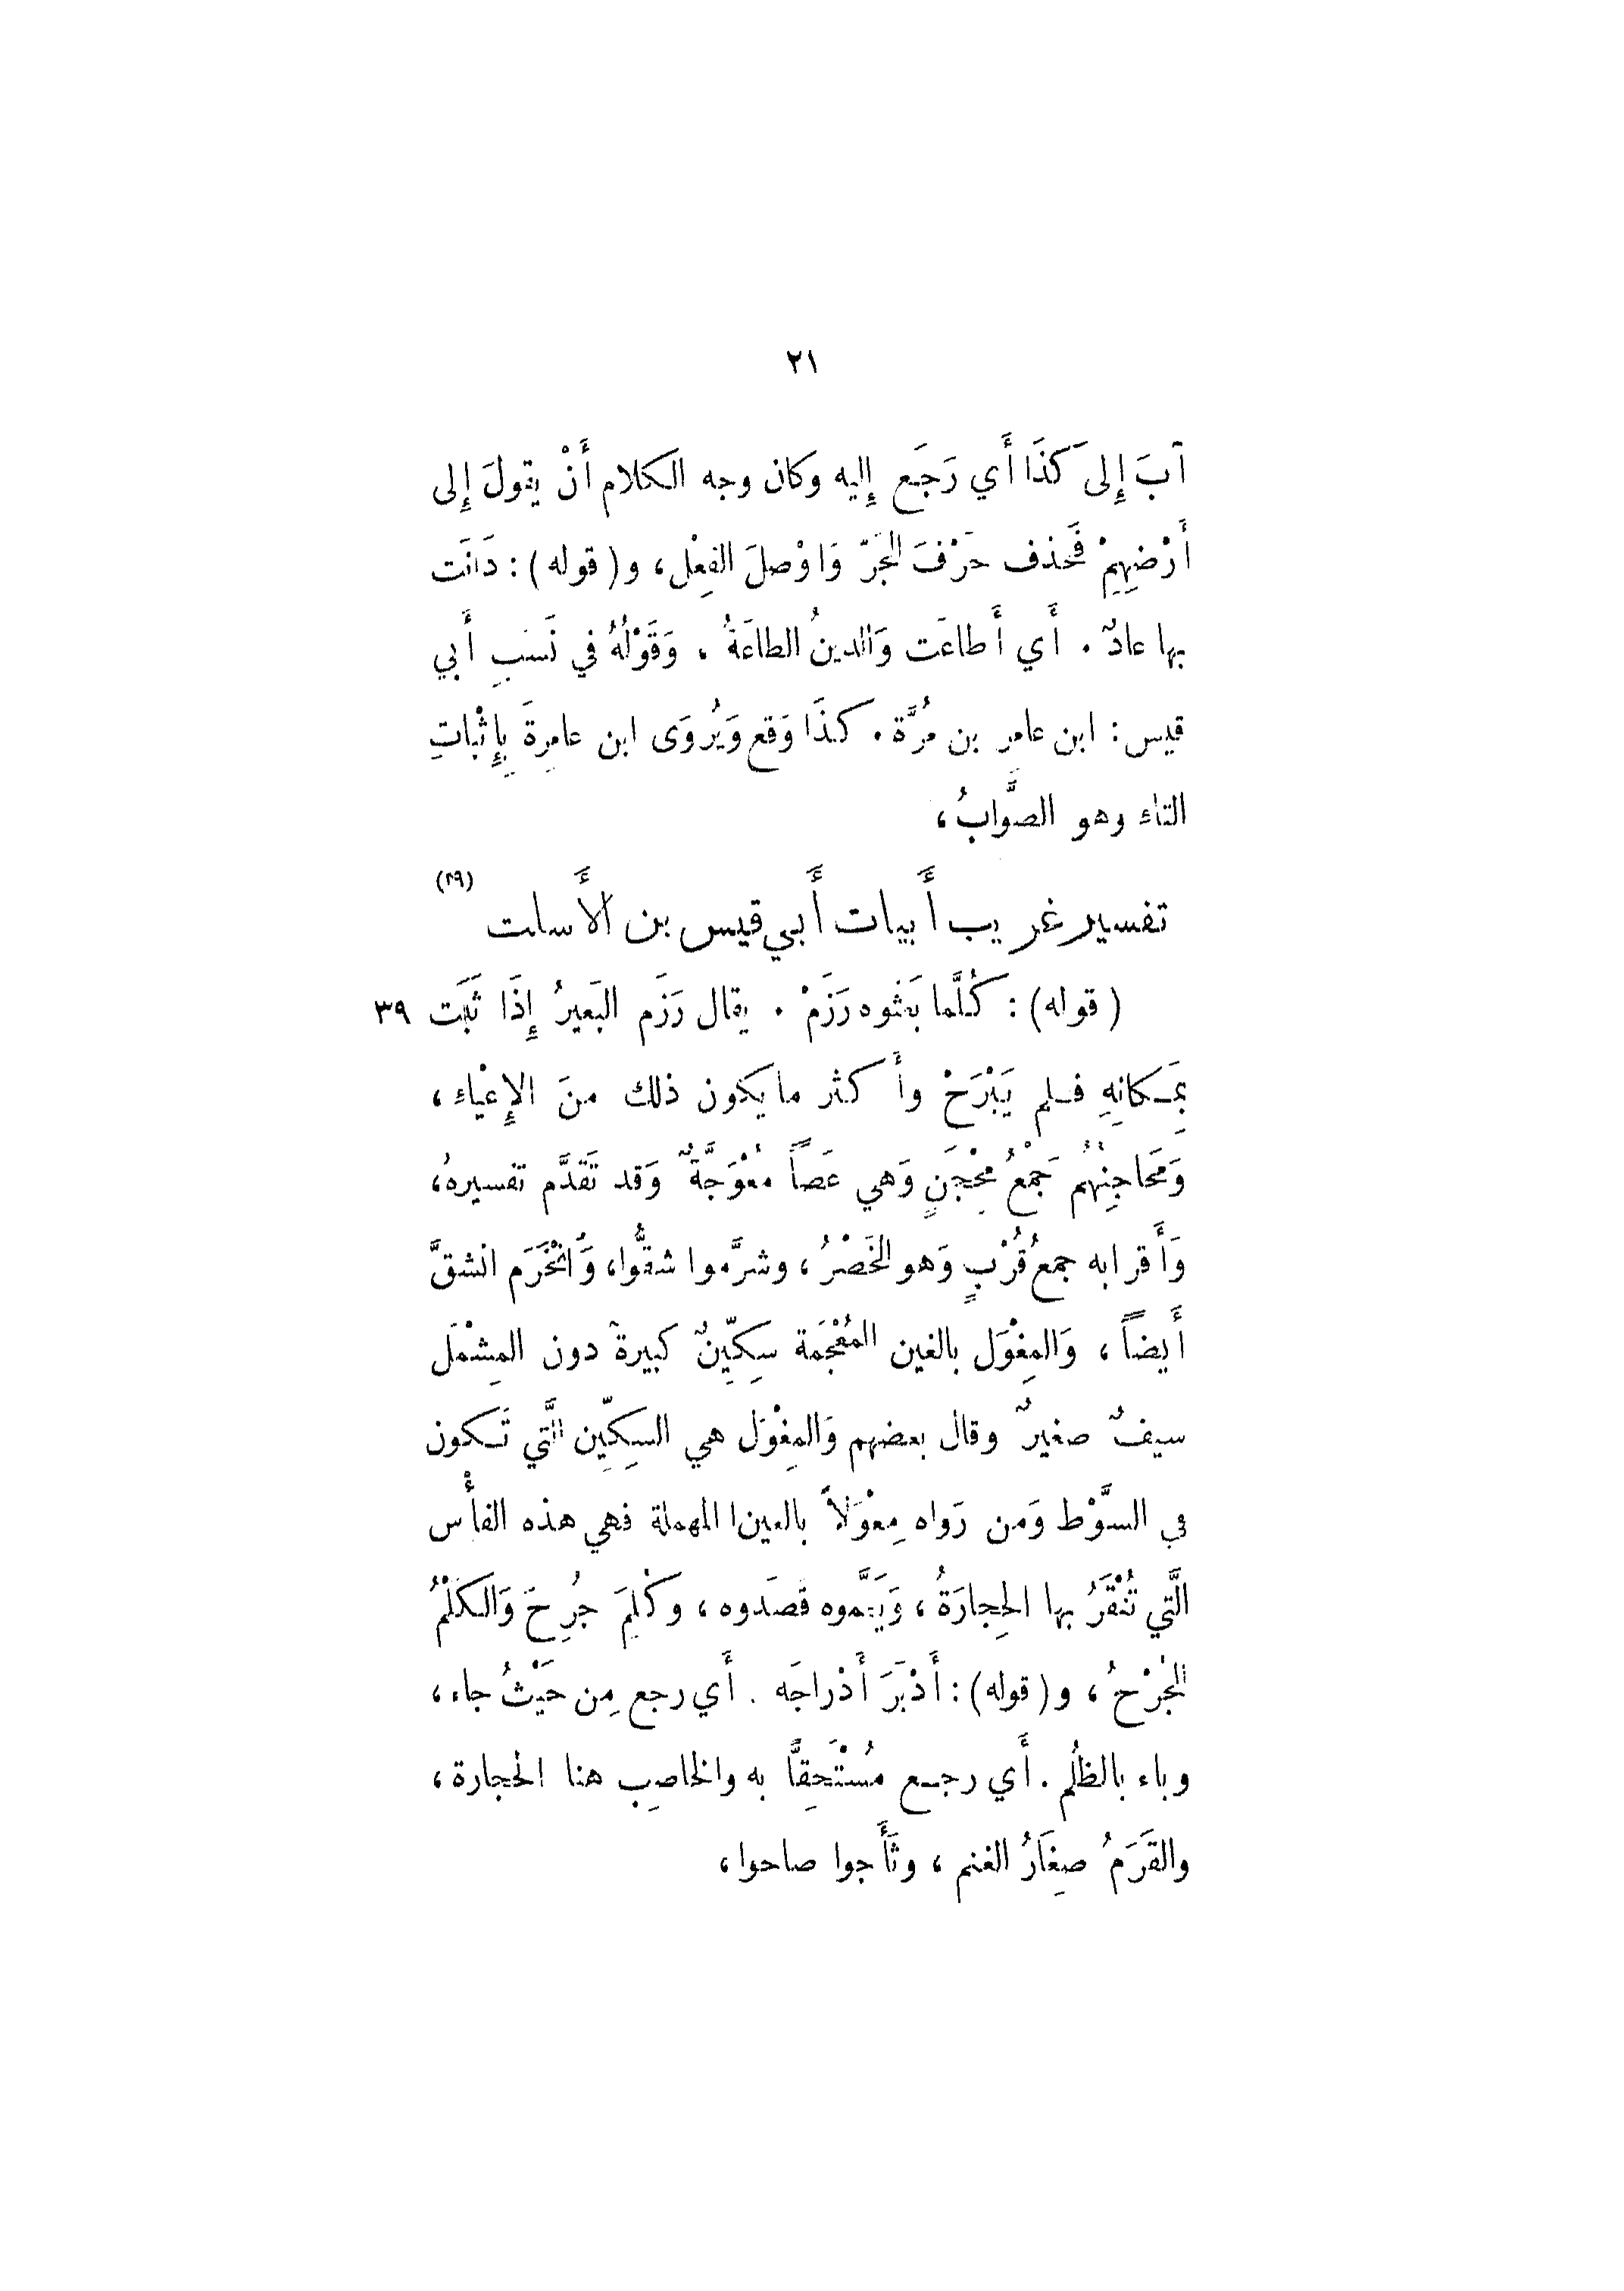 ٢١
آبَ إِلى كَذَا أَي رَجَع إِليه وكان وجه الكلام أَنْ يقولَ إِلى
أَرْضِهِمْ فَحذف حَرْفَ الجَرّ وَاوْصلَ الفِعْل، و(قوله): دَانَت
بها عادٌ. أَي أَطاعَت وَالدينُ الطاعَةُ. وَقَوْلُهُ في نَسَبِ أَبي
قيس: ابن عامرِ بن مُرَّة. كذَا وَقع وَيُروَى ابن عامرِةَ بِإِثْباتِ
التاء وهو الصَّوابُ،
تفسير غريب أَبيات أَبي قيس بن الأَسلت (٢٩)
(قوله): كُلَّما بَعَثوه رَزَمْ. يقال رَزَم البَعيرُ إِذَا ثَبَت ٣٩
بِمَكانِهِ فلم يَبْرَحْ وأَكثر ما يكون ذلك منَ الإِعْياءِ،
وَمَحاجِنُهُمْ جَمْعُ مِحْجَنٍ وَهي عَصاً مُعْوَجَّةٌ وَقد تَقَدَّم تفسيرهُ،
وَأَقرابه جمعُ قُرْبٍ وَهو الخَصْرُ، وشرَّموا شقُّوا، وَانْخَرَم انشقَّ
أَيضاً، وَالمِغْوَل بالغين المُعْجَمة سِكِّينٌ كبيرة دون المِشْمَل
سيفٌ صغيرٌ وقال بعضهم وَالمِغْوَل هي السِكِّين الَّتي تَكون
في السَّوْط وَمن رَواه مِعْوَلاً بالعين المهملة فهي هذه الفأْس
الَّتي تُنْقَرُ بها الحِجارَةُ، وَيَمَّموه قَصَدوه، وكُلِمَ جُرِحَ وَالكَلْمُ
الجُرْحُ، و(قوله): أَدْبَرَ أَدْراجَه. أَي رجع مِن حَيْثُ جاء،
وباء بالظُلم. أَي رجع مُسْتَحِقًّا به والحاصِب هنا الحجارة،
والقَزَمُ صِغَارُ الغنم، وثَأَجوا صاحوا،